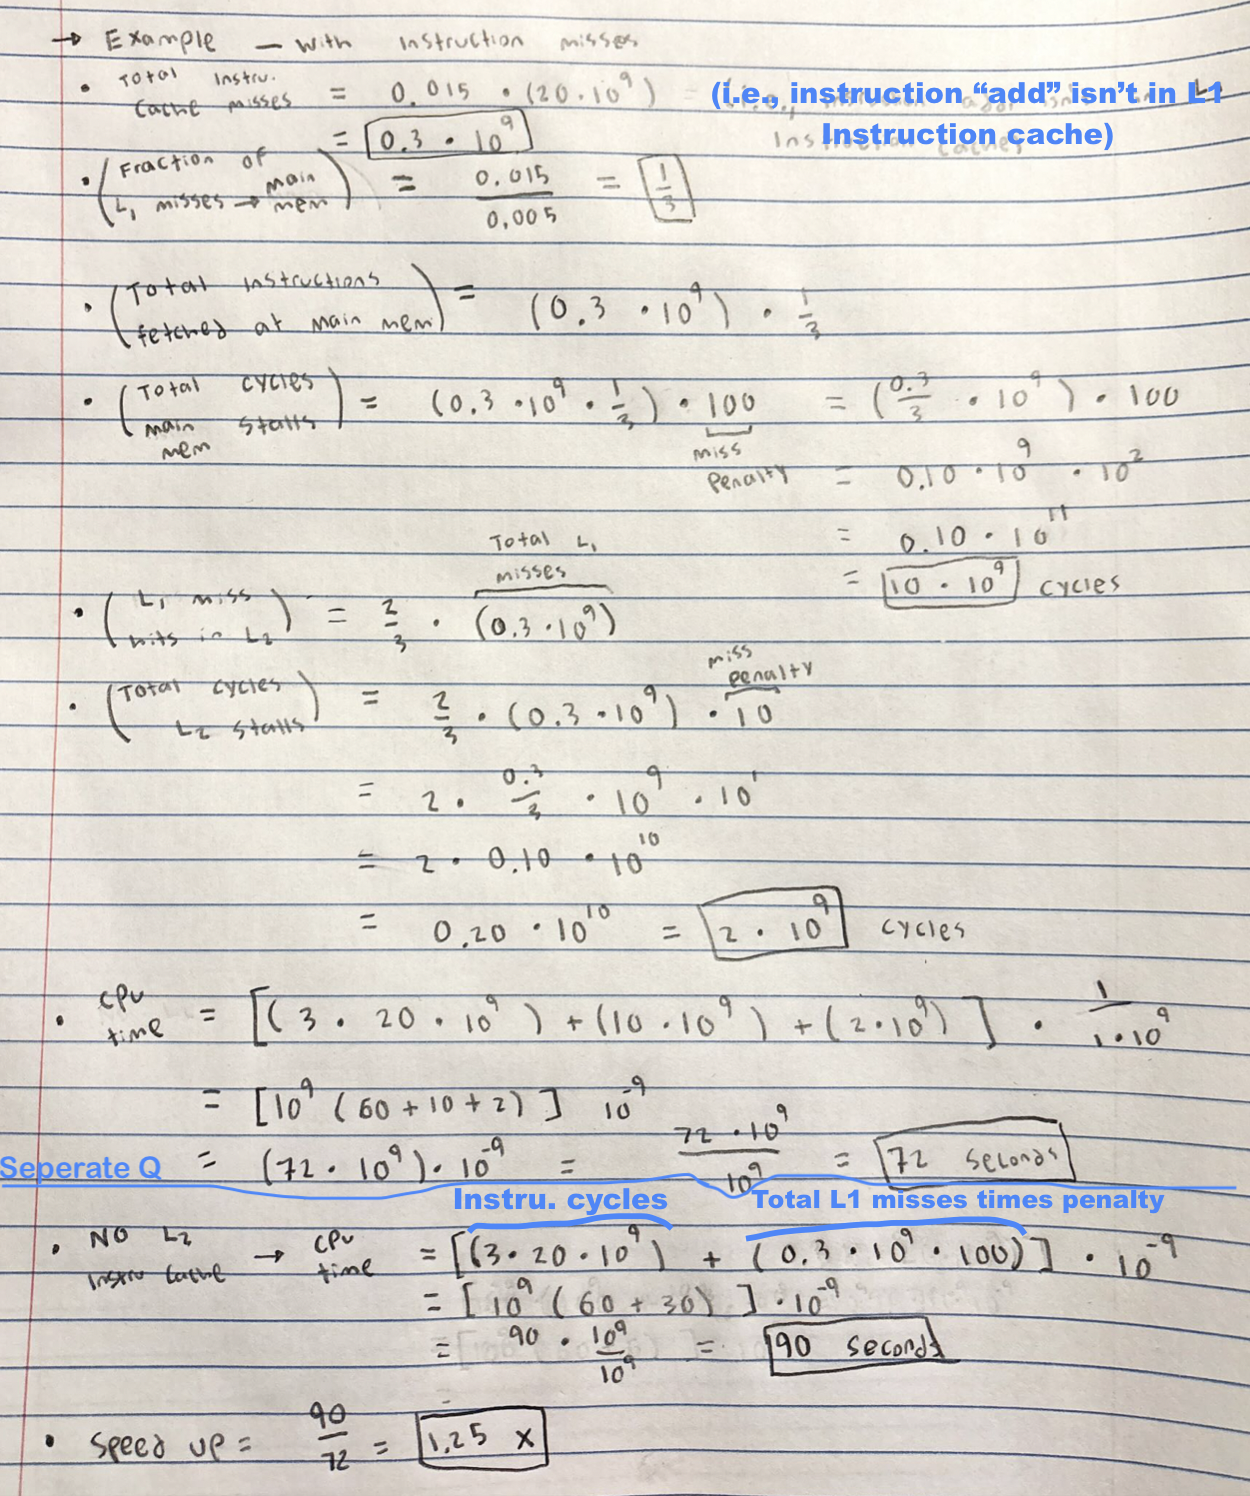 → Example — with instruction misses
• Total Instru. Cache misses = 0.015 · (20·10⁹) (i.e., instruction “add” isn’t in L1
Instruction cache)
= 0.3 · 10⁹
• (Fraction of L₁ misses → main mem) = 0.015 / 0.005 = 1/3
• (Total instructions fetched at main mem) = (0.3 · 10⁹) · 1/3
• (Total cycles main mem stalls) = (0.3 · 10⁹ · 1/3) · 100 = (0.3/3 · 10⁹) · 100
miss penalty
= 0.10 · 10⁹ · 10²
= 0.10 · 10¹¹
= 10 · 10⁹ cycles
Total L₁ misses
• (L₁ miss hits in L₂) = 2/3 · (0.3 · 10⁹)
miss penalty
• (Total cycles L₂ stalls) = 2/3 · (0.3 · 10⁹) · 10
= 2 · 0.3/3 · 10⁹ · 10¹
= 2 · 0.10 · 10¹⁰
= 0.20 · 10¹⁰ = 2 · 10⁹ cycles
• CPU time = [(3 · 20 · 10⁹) + (10 · 10⁹) + (2 · 10⁹)] · 1 / 1·10⁹
= [10⁹ (60 + 10 + 2)] 10⁻⁹
Seperate Q = (72 · 10⁹) · 10⁻⁹ = 72 · 10⁹ / 10⁹ = 72 seconds
Instru. cycles Total L1 misses times penalty
• NO L₂ Instru Cache → CPU time = [(3 · 20 · 10⁹) + (0.3 · 10⁹ · 100)] · 10⁻⁹
= [10⁹ (60 + 30)] · 10⁻⁹
= 90 · 10⁹ / 10⁹ = 90 seconds
• Speed up = 90 / 72 = 1.25 x